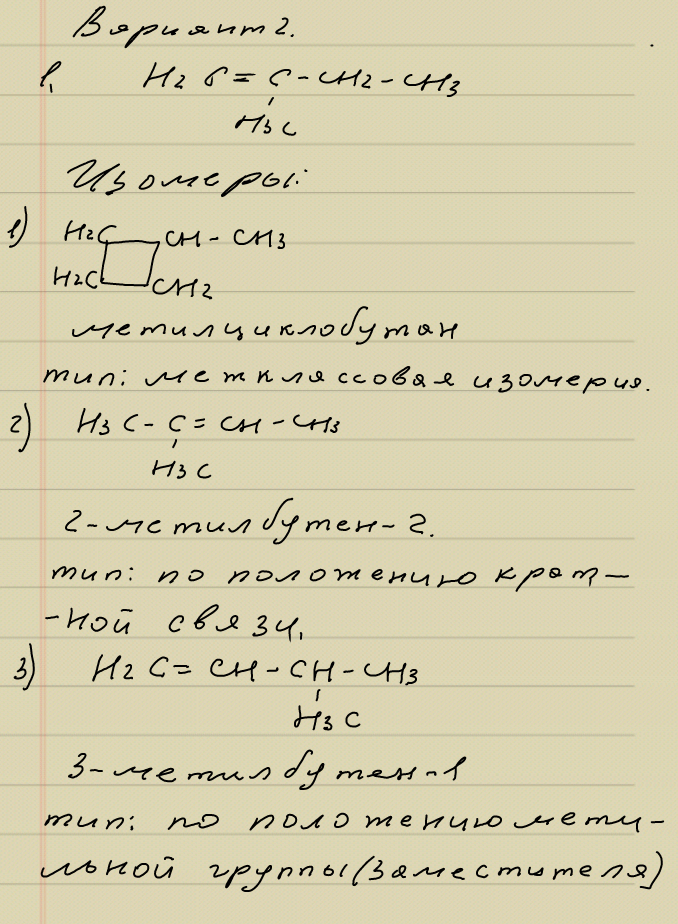 Вариант 2.
1. H2C=C-CH2-CH3
H3C
Изомеры:
1) H2C CH-CH3
H2C CH2
метилциклобутан
тип: межклассовая изомерия.
2) H3C-C=CH-CH3
H3C
2-метилбутен-2.
тип: по положению крат-
-ной связи.
3) H2C=CH-CH-CH3
H3C
3-метилбутен-1
тип: по положению мети-
льной группы (заместителя)